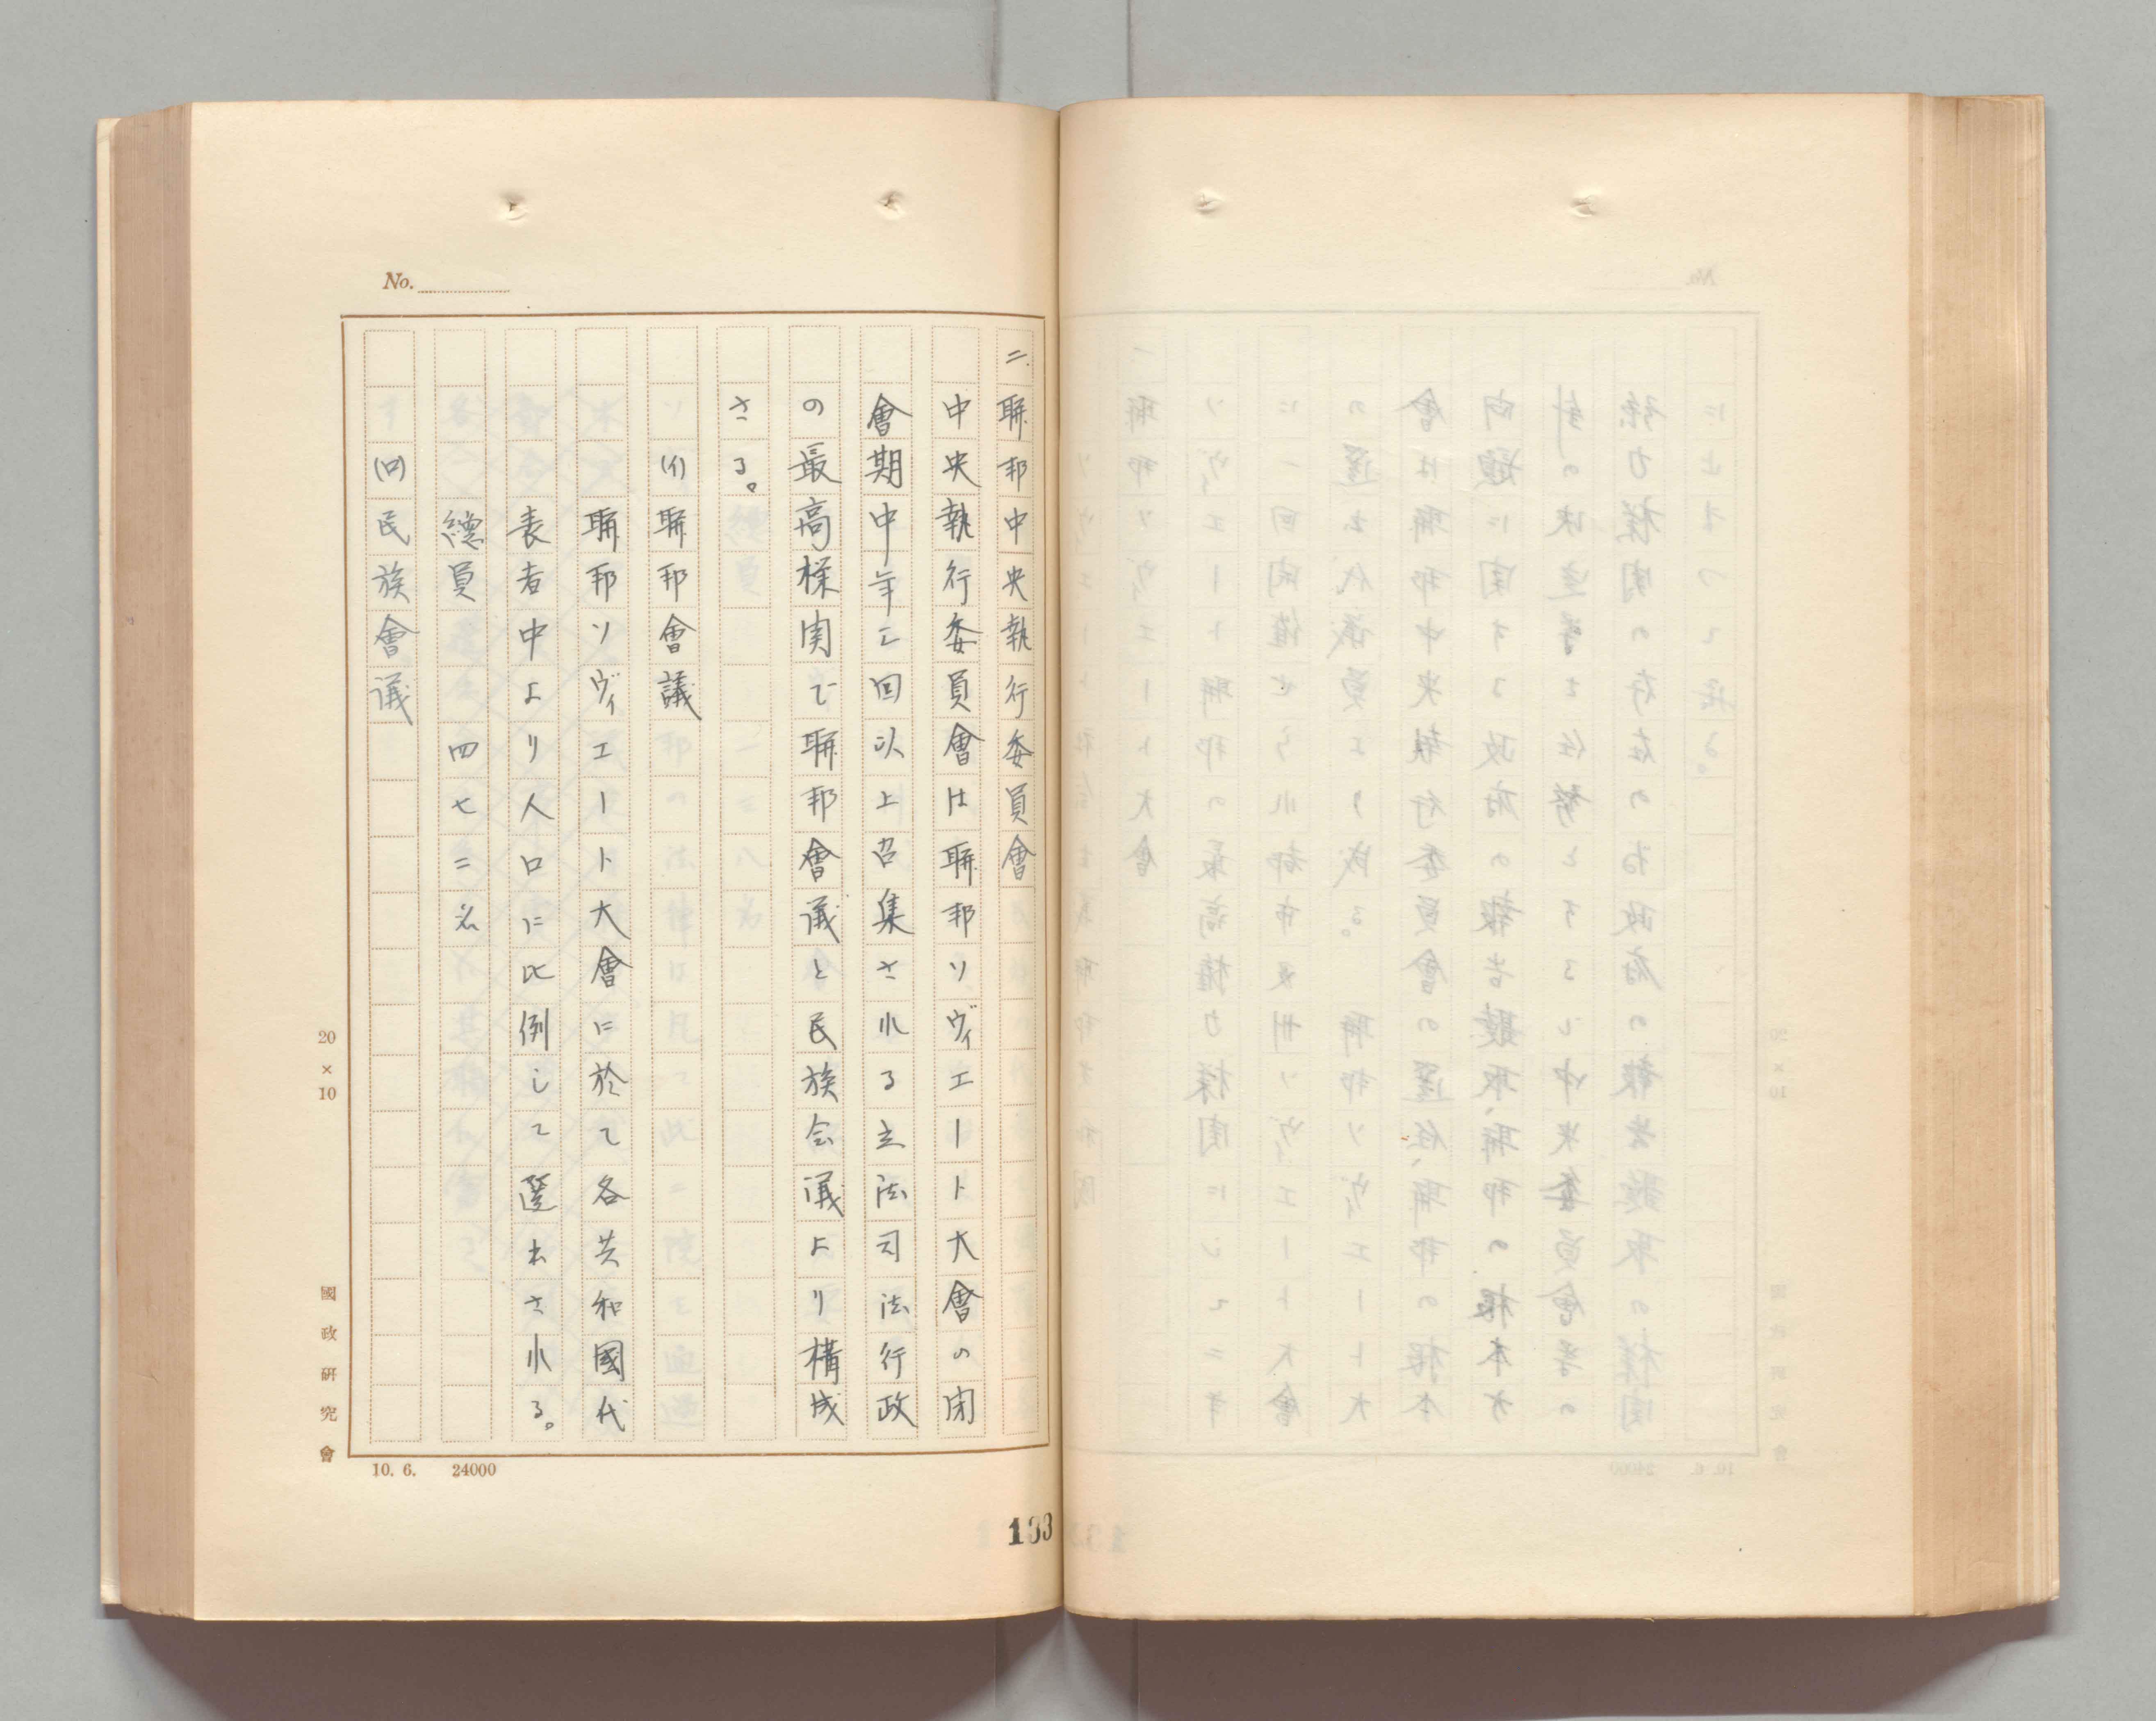 No.
二.聯邦中央執行委員會
中央執行委員會は聯邦ソヴィエート大會の閉
會期中年三回以上召集される立法司法行政
の最高機関で聯邦會議と民族会議より構成
さる。
(イ)聯邦會議
聯邦ソヴィエート大會に於て各共和國代
表者中より人口に比例して選出される。
總員 四七二名
(ロ)民族會議
20×10
國政研究會
10. 6. 24000
133